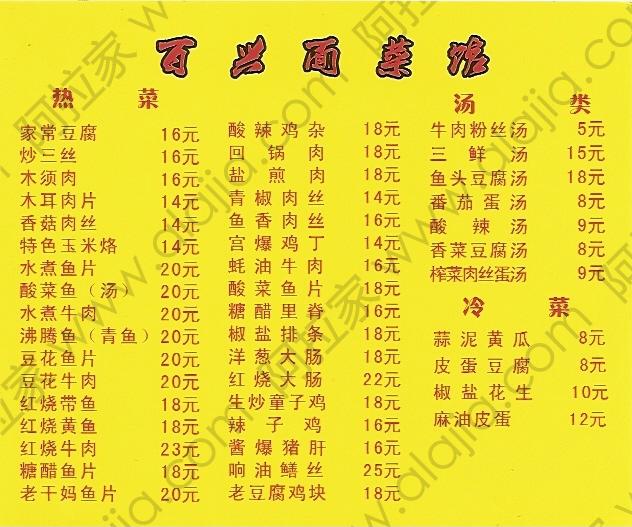 百兴面菜馆
热菜
家常豆腐 16元
炒三丝 16元
木须肉 16元
木耳肉片 14元
香菇肉丝 14元
特色玉米烙 14元
水煮鱼片 20元
酸菜鱼（汤） 20元
水煮牛肉 20元
沸腾鱼（青鱼） 20元
豆花鱼片 20元
豆花牛肉 20元
红烧带鱼 18元
红烧黄鱼 18元
红烧牛肉 23元
糖醋鱼片 18元
老干妈鱼片 20元
酸辣鸡杂 18元
回锅肉 18元
盐煎肉 18元
青椒肉丝 14元
鱼香肉丝 14元
宫爆鸡丁 14元
蚝油牛肉 16元
酸菜鱼片 18元
糖醋里脊 16元
椒盐排条 18元
洋葱大肠 18元
红烧大肠 22元
生炒童子鸡 18元
辣子鸡 16元
酱爆猪肝 16元
响油鳝丝 25元
老豆腐鸡块 18元
汤类
牛肉粉丝汤 5元
三鲜汤 15元
鱼头豆腐汤 18元
番茄蛋汤 8元
酸辣汤 9元
香菜豆腐汤 8元
榨菜肉丝蛋汤 9元
冷菜
蒜泥黄瓜 8元
皮蛋豆腐 8元
椒盐花生 10元
麻油皮蛋 12元
阿拉家 www.alajia.com